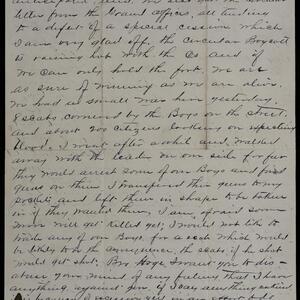 letter from the Grand Office, all
to a defeat of a special session which
I am very glad off. the circular Boycott
is running but with the Co and if
We Can only hold the fort We are
as sure of winning as we are alive.
We had us small war here yesterday.
8 scabs cornered by the Boys on the street,
and about 200 citizens looking on expecting
blood. I went after a while and walked
away with the scabs on one side for fear
they would arrest some of our Boys and find
guns on them I transferred their guns to my
pockets and left them in shape to be taken
in if they wanted them, I am afraid some
man will get killed yet, I would not like to
trade any of our Boys for a scab which would
be likely to be the consequence, the scabs if a shot
would get shot, Bro Hoge I want you to dis-
abuse your mind of any failing that I have
anything against you. if I say anything